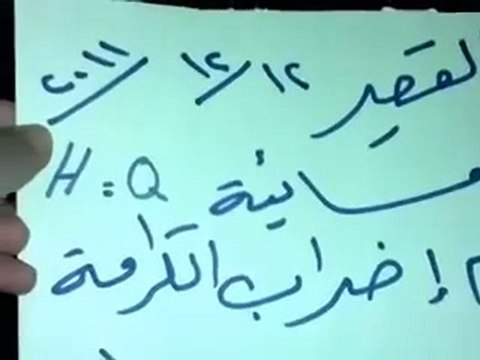 لقصير ١٢/١٢/٢٠١١
مسائية H:Q
إضراب الكرامة